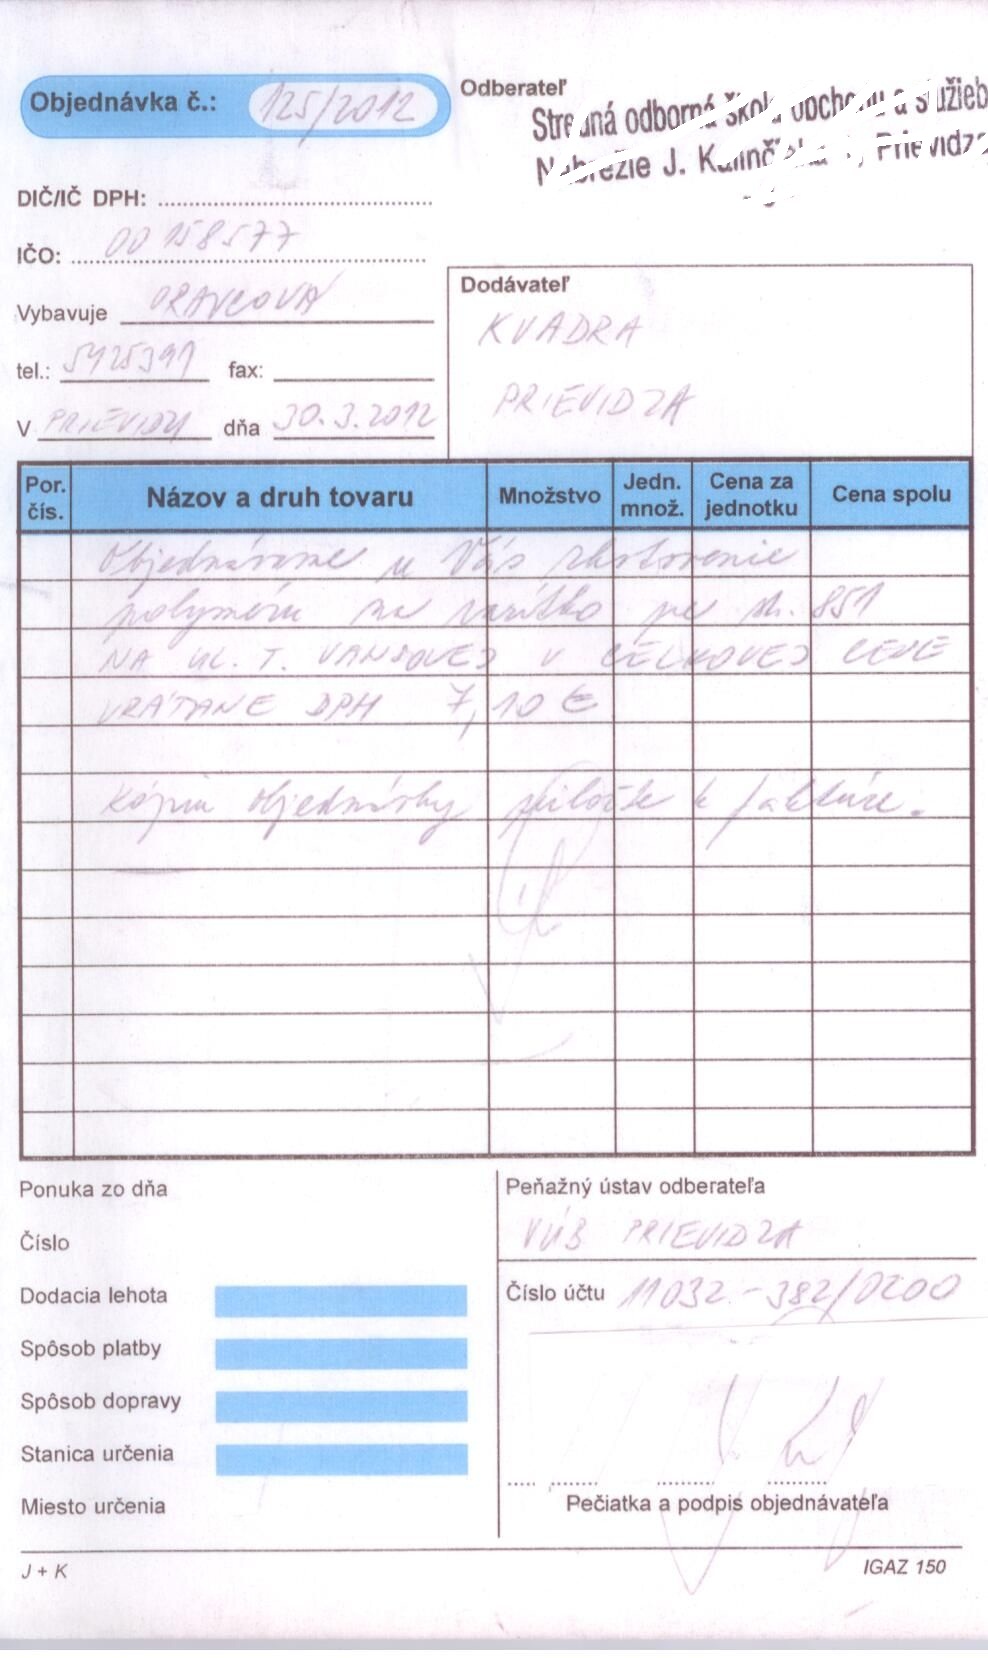 Objednávka č.: 125/2012
Odberateľ
Stredná odborná škola obchodu a služieb
Nábrežie J. Kalinčiaka Prievidza
DIČ/IČ DPH:
IČO: 00158577
Vybavuje ORAVCOVÁ
tel.: 5425391 fax:
V PRIEVIDZI dňa 30.3.2012
Dodávateľ
KVADRA
PRIEVIDZA
Por. čís. Názov a druh tovaru Množstvo Jedn. množ. Cena za jednotku Cena spolu
Objednávame u Vás zhotovenie
na 851
NA UL. T. VANSOVEJ V CELKOVEJ CENE
VRÁTANE DPH 7,10 €
Kópiu objednávky priložte k faktúre.
Ponuka zo dňa
Číslo
Dodacia lehota
Spôsob platby
Spôsob dopravy
Stanica určenia
Miesto určenia
Peňažný ústav odberateľa
VÚB PRIEVIDZA
Číslo účtu 11032-382/0200
Pečiatka a podpis objednávateľa
J + K
IGAZ 150